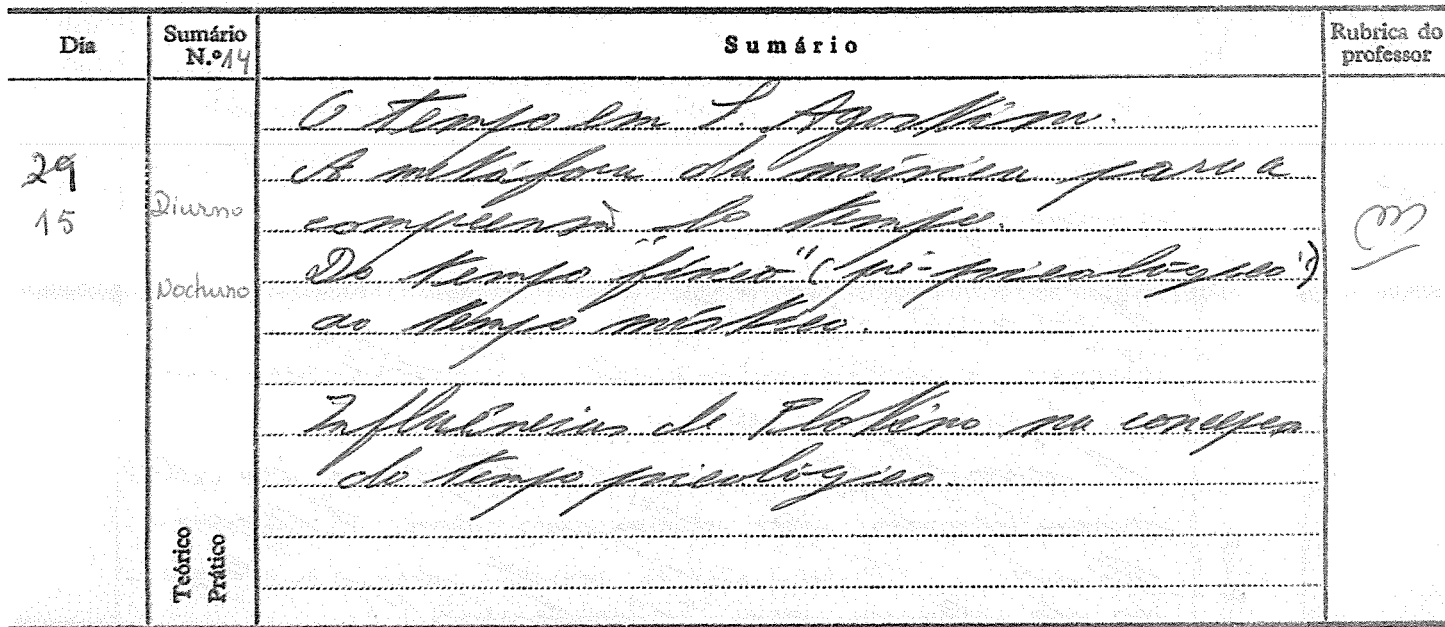 Dia
Sumário N.º 14
Sumário
Rubrica do professor
29
15
Diurno
Nocturno
O tempo em S. Agostinho.
A metáfora da música para a
compreensão do tempo.
Do tempo "físico" (pré-psicológico")
ao tempo místico.
Influências de Plotino na concepção
do tempo psicológico.
Teórico
Prático